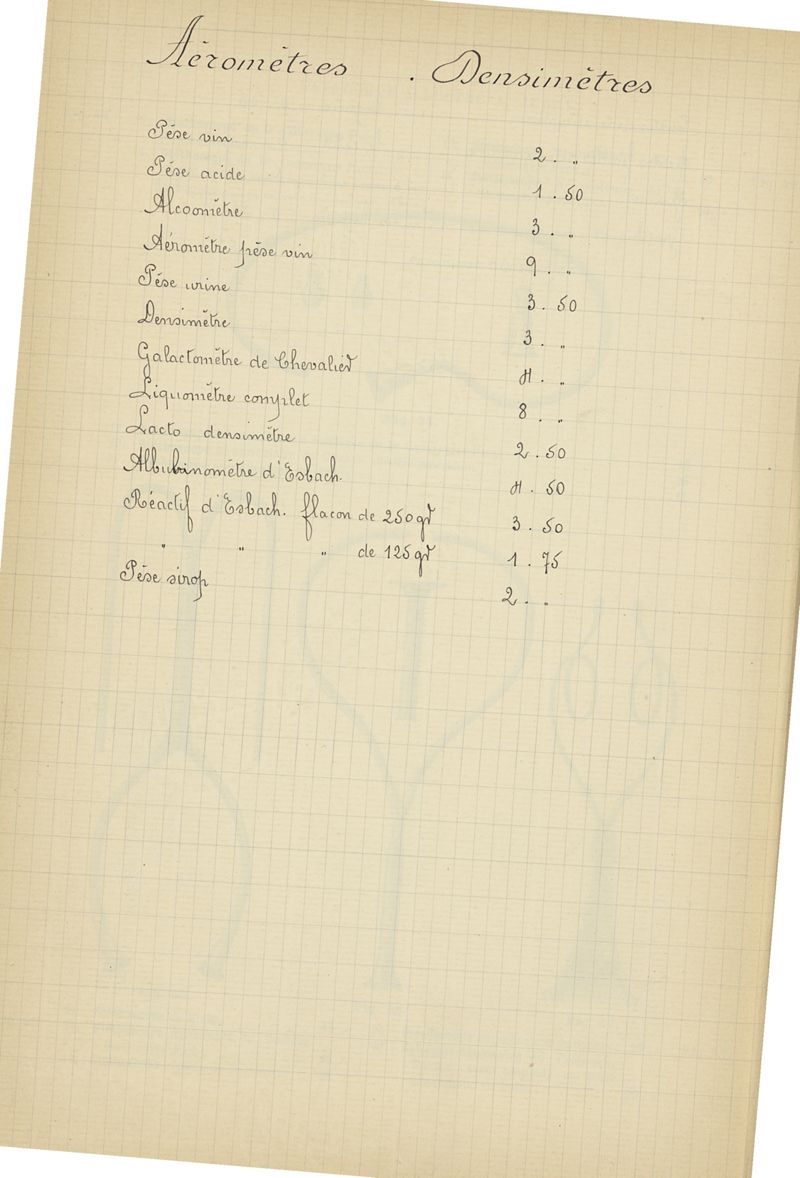 Aéromètres . Densimètres
Pése vin 2 . „
Pése acide 1 . 50
Alcoomètre 3 . „
Aéromètre pèse vin 9 . „
Pése urine 3 . 50
Densimètre 3 . „
Galactomètre de Chevalier 4 . „
Liquomètre complet 8 . „
Lacto densimètre 2 . 50
Albubinomètre d'Esbach. 4 . 50
Réactif d'Esbach. flacon de 250 gr 3 . 50
„ „ „ de 125 gr 1 . 75
Pése sirop 2 . „